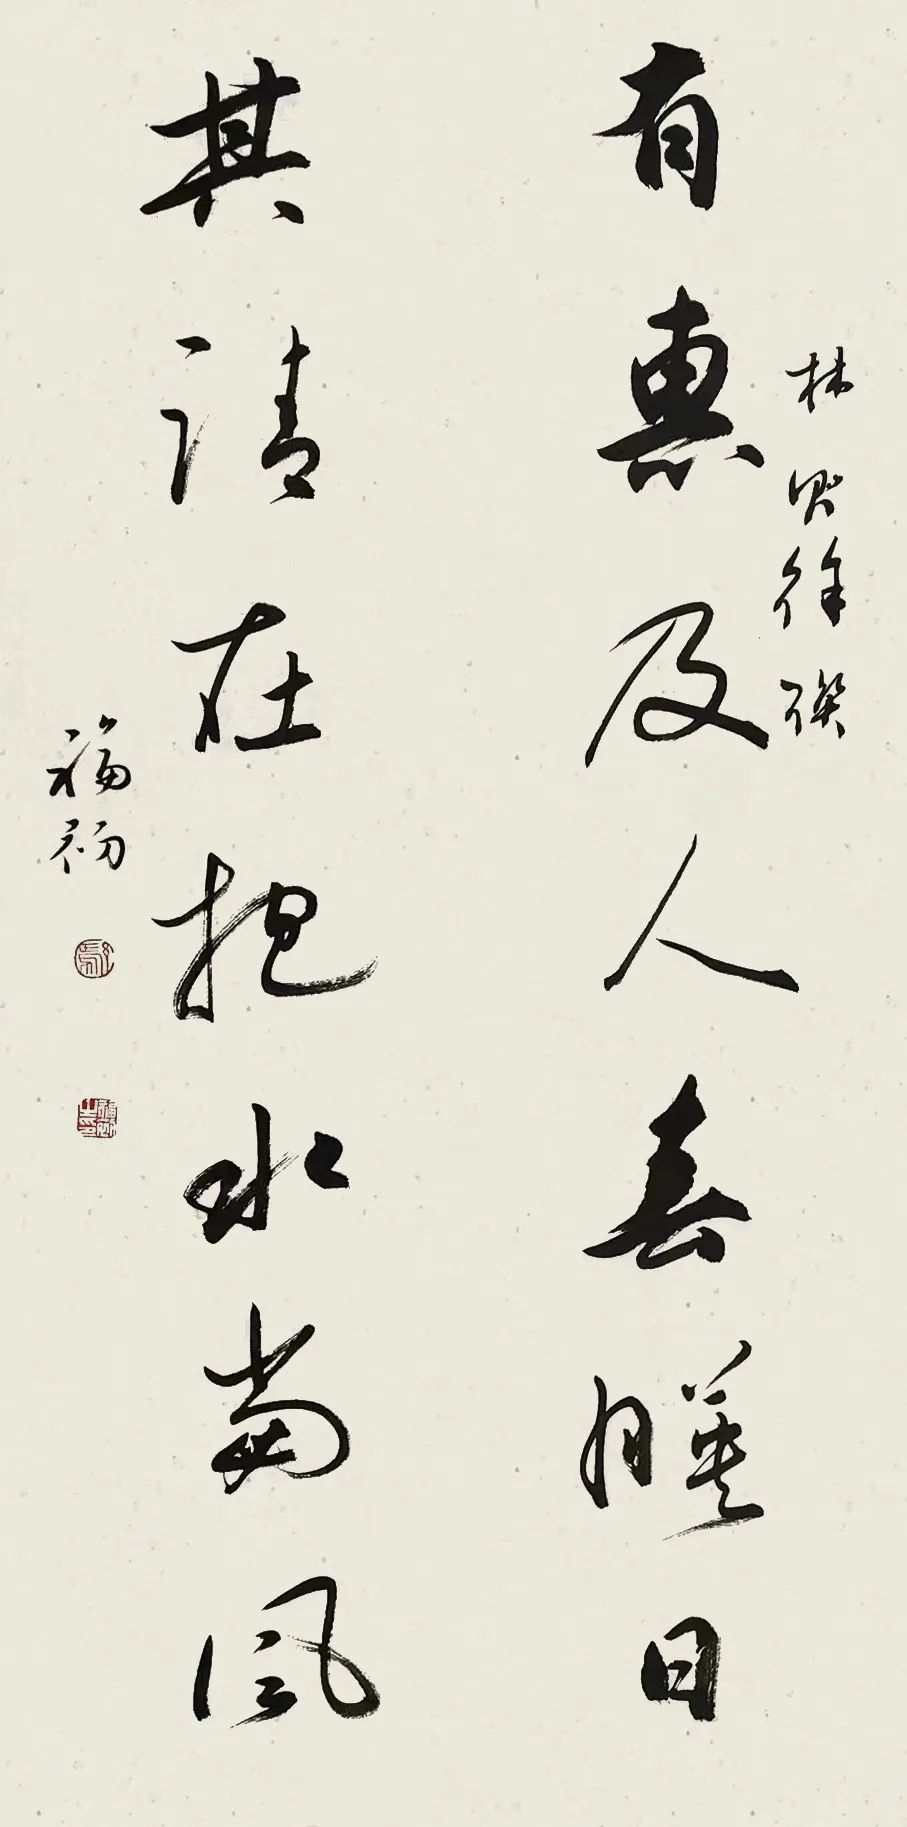 林則徐聯
有惠及人春暖日
其清在抱水當風
福初